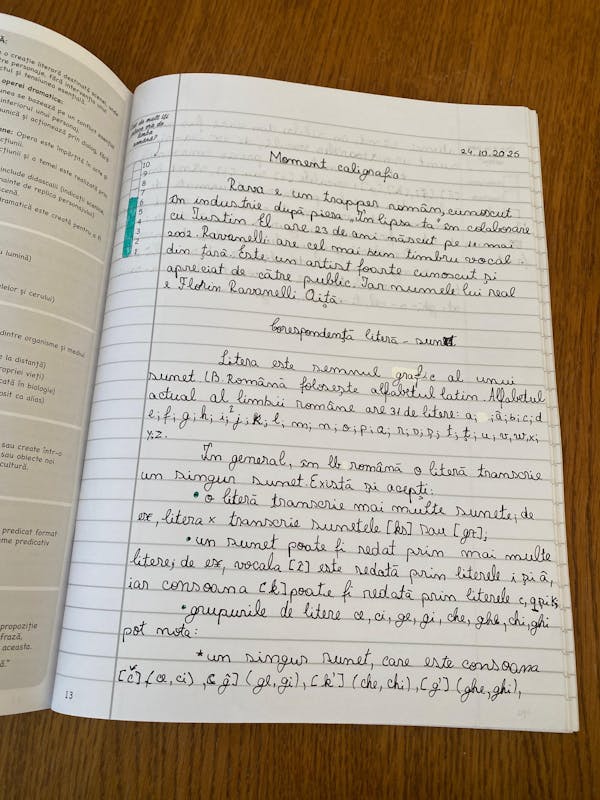 Ă:
o creație literară destinată scenei, unde
personaje, fără intervenția unui
și tensiunea esențială.
operei dramatice:
se bazează pe un conflict esențial
interiorul unui personaj.
și acționează prin dialog, fără
Opera este împărțită în acte și
a temei este realizată prin
include didascalii (indicații scenice,
înainte de replica personajului)
scenă.
dramatică este creată pentru a fi
cu lumină)
stelelor și cerului)
dintre organisme și mediu
la distanță)
propriei vieți)
în biologie)
ca alias)
sau create într-o
sau obiecte noi
cultură.
predicat format
predicativ
propoziție
frază,
aceasta.
13
de mult îți
place ora de
limba
română?
10
9
8
7
6
5
4
3
2
1
24.10.2025
Moment caligrafia
Rava e un trapper român, cunoscut
în industrie după piesa „În lipsa ta" în colaborare
cu Iustin. El are 23 de ani născut pe 11 mai
2002. Ravanelli are cel mai bun timbru vocal
din țară. Este un artist foarte cunoscut și
apreciat de către public. Iar numele lui real
e Florin Ravanelli Aiță
Corespondență literă - sunet
Litera este semnul grafic al unui
sunet LB. Română folosește alfabetul latin. Alfabetul
actual al limbii române are 31 de litere: a; ; â; b; c; d
e; f; g; h; i; î; j; k; l; m; n; o; p; q; r; s; ș; t; ț; u; v; w; x;
y; z.
În general, în lb română o literă transcrie
un singur sunet. Există și acepți:
• o literă transcrie mai multe sunete; de
ex, litera x transcrie sunetele [ks] sau [gz];
• un sunet poate fi redat prin mai multe
litere; de ex, vocala [î] este redată prin literele î și â,
iar consoana [k] poate fi redată prin literele c, q și k;
• grupurile de litere ce, ci, ge, gi, che, ghe, chi, ghi
pot nota:
* un singur sunet, care este consoana
[č] (ce, ci), ĝ] (ge, gi), [k'] (che, chi), [g'] (ghe, ghi),